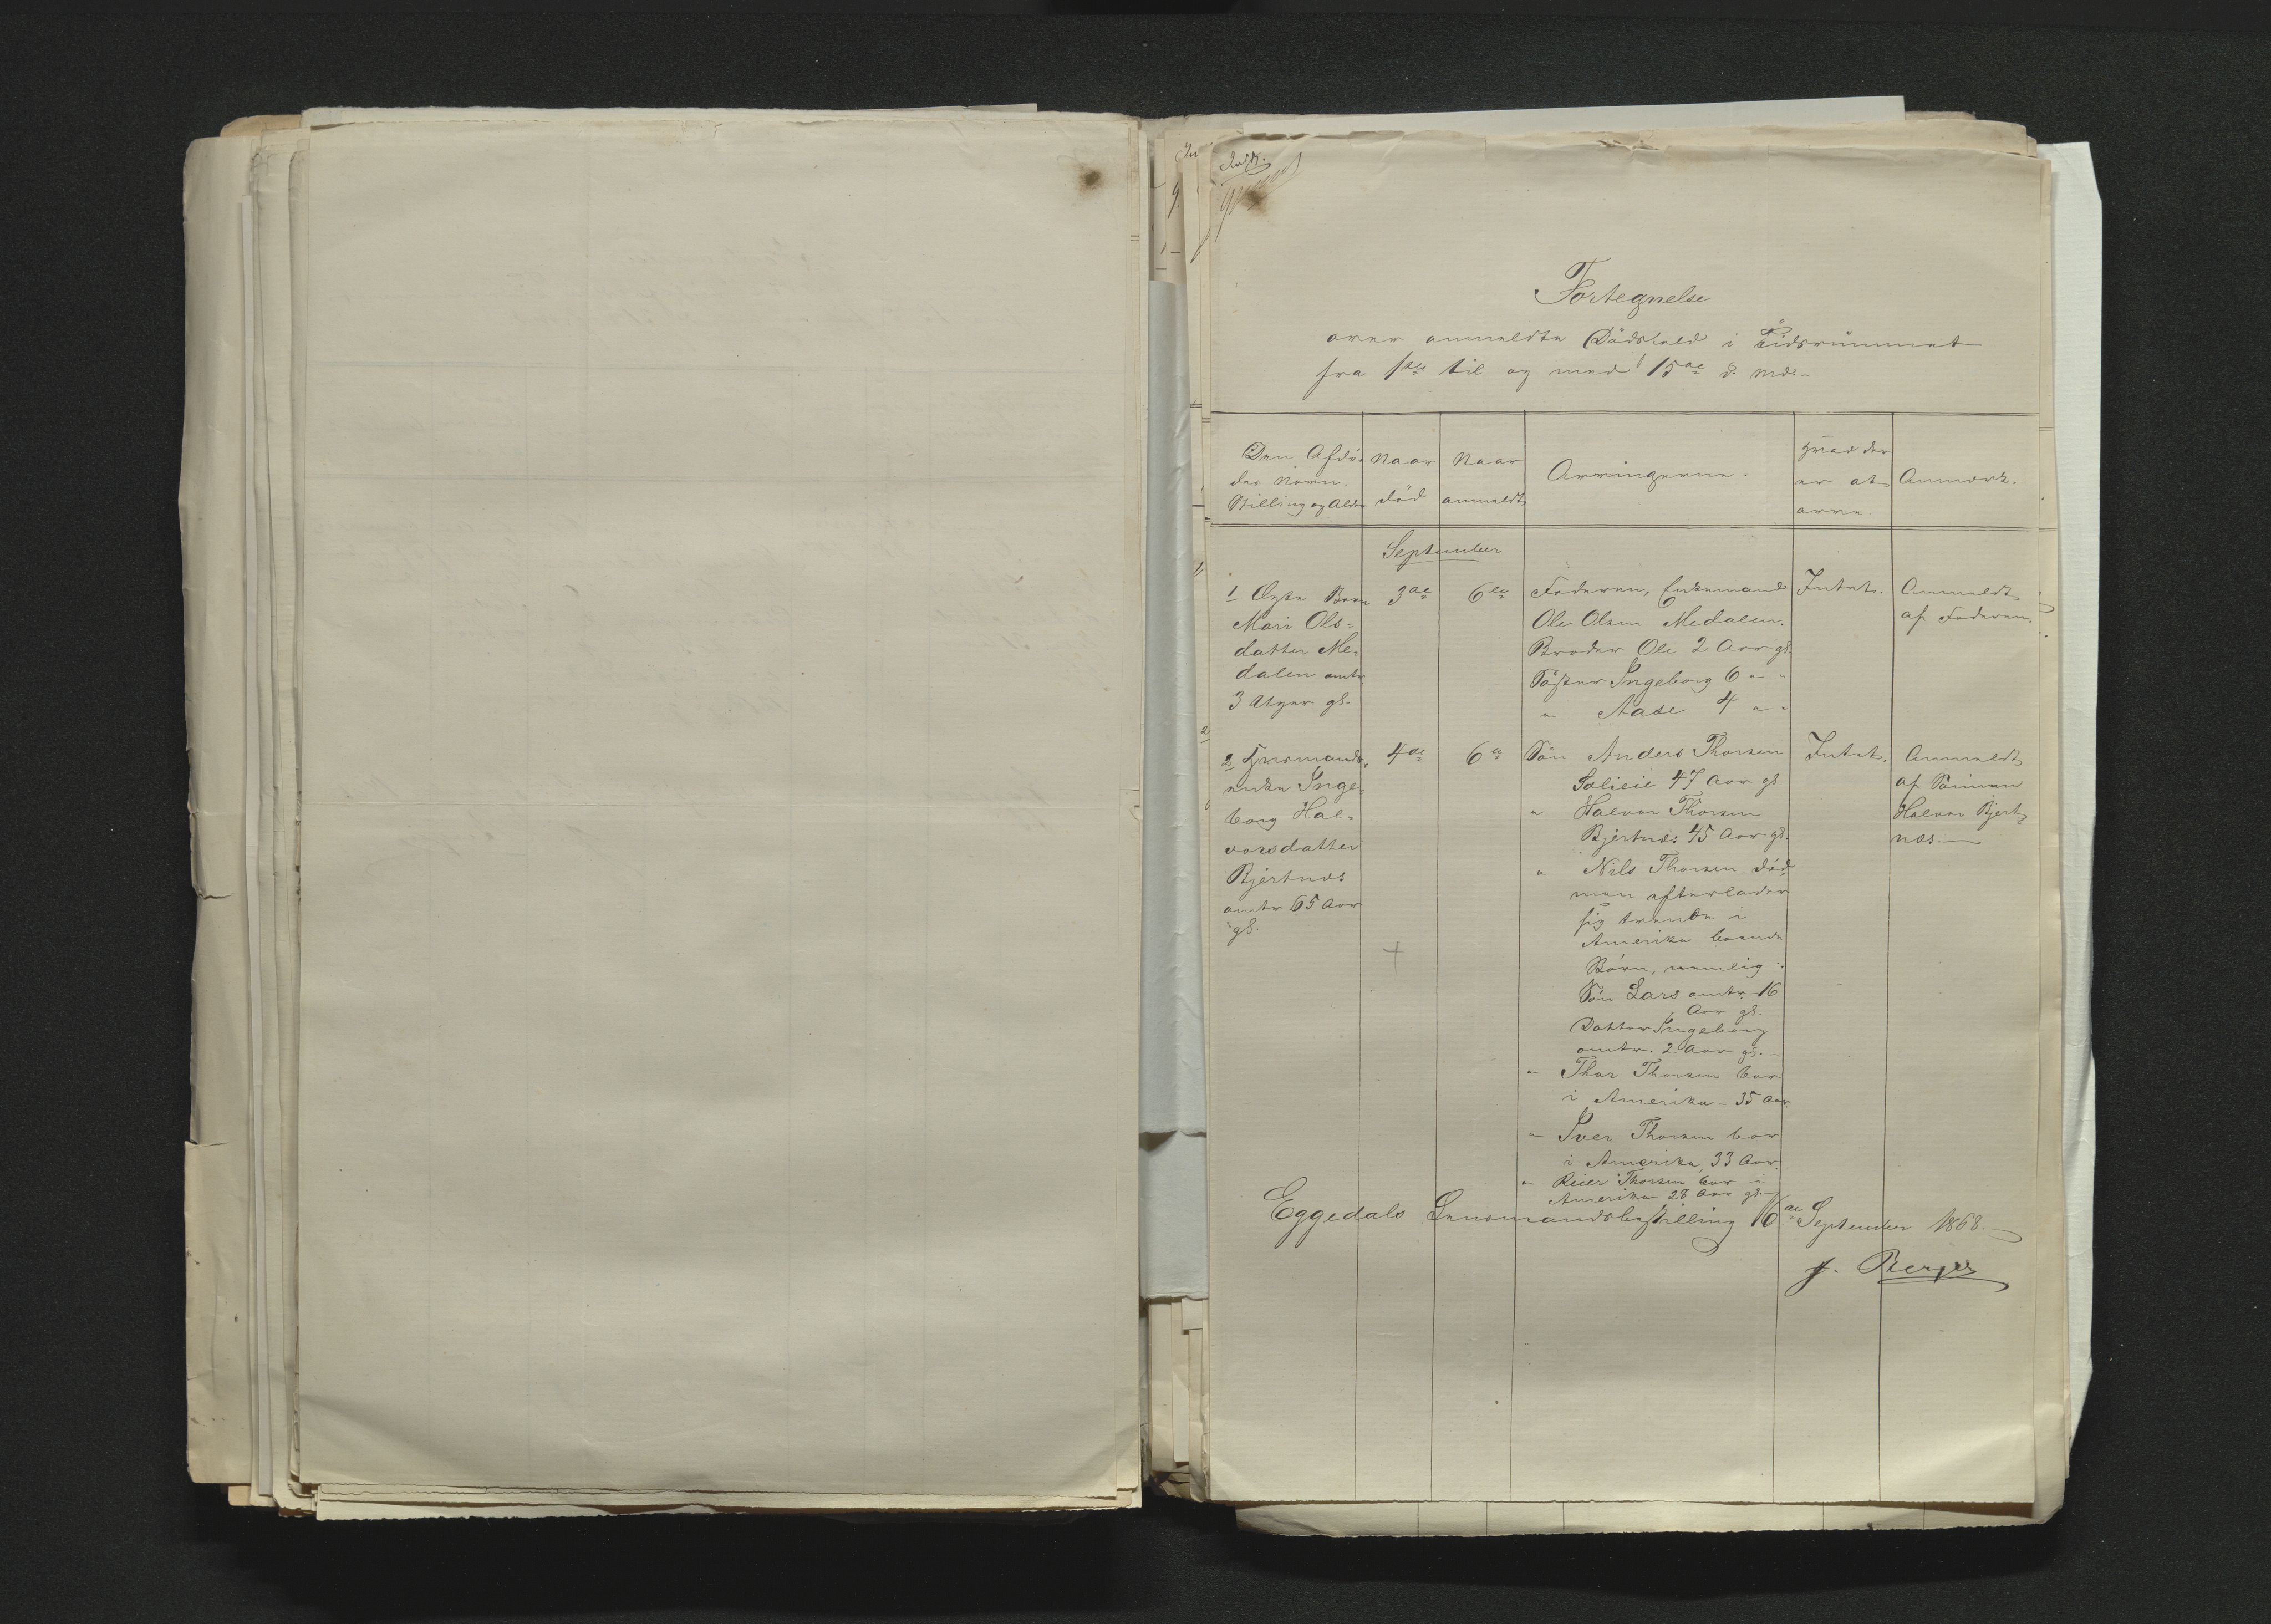 Fortegnelse
over anmeldte Dödsfald i Tidsrummet
fra 1ste til og med 15de d. Md.
Den Afdö-
des Navn,
Stilling og Alder
Naar
död
Naar
anmeldt
Arvingerne.
Hvad der
er at
arve
Anmærk.
September
1 Ægte Barn
Mari Ols=
datter Me=
dalen omtr.
3 Uger gl.
3de
6te
Faderen, Enkemand
Ole Olsen Medalen.
Broder Ole 2 Aar gl.
Söster Ingeborg 6 " "
" Aase 4 " "
Intet.
Anmeldt
af Faderen.
2 Huusmands-
enke Inge=
borg Hal=
vorsdatter
Bjertnæs
omtr 65 Aar
gl.
4de
6te
Sön Anders Thorsen
Solieie 47 Aar gl.
" Halvor Thorsen
Bjertnæs 45 Aar gl.
" Nils Thorsen död,
men efterlader
sig trende i
Amerika boende
Börn, nemlig:
Sön Lars omtr. 16
Aar gl.
Datter Ingeborg
omtr. 2 Aar gl.
" Thor Thorsen boer
i Amerika - 35 Aar
" Iver Thorsen boer
i Amerika, 33 Aar.
" Reier Thorsen boer i
Amerika 28 Aar gl.
Intet.
Anmeldt
af Sönnen
Halvor Bjert=
næs.
Eggedals Lensmandsbestilling 16de September 1868.
J. Berger